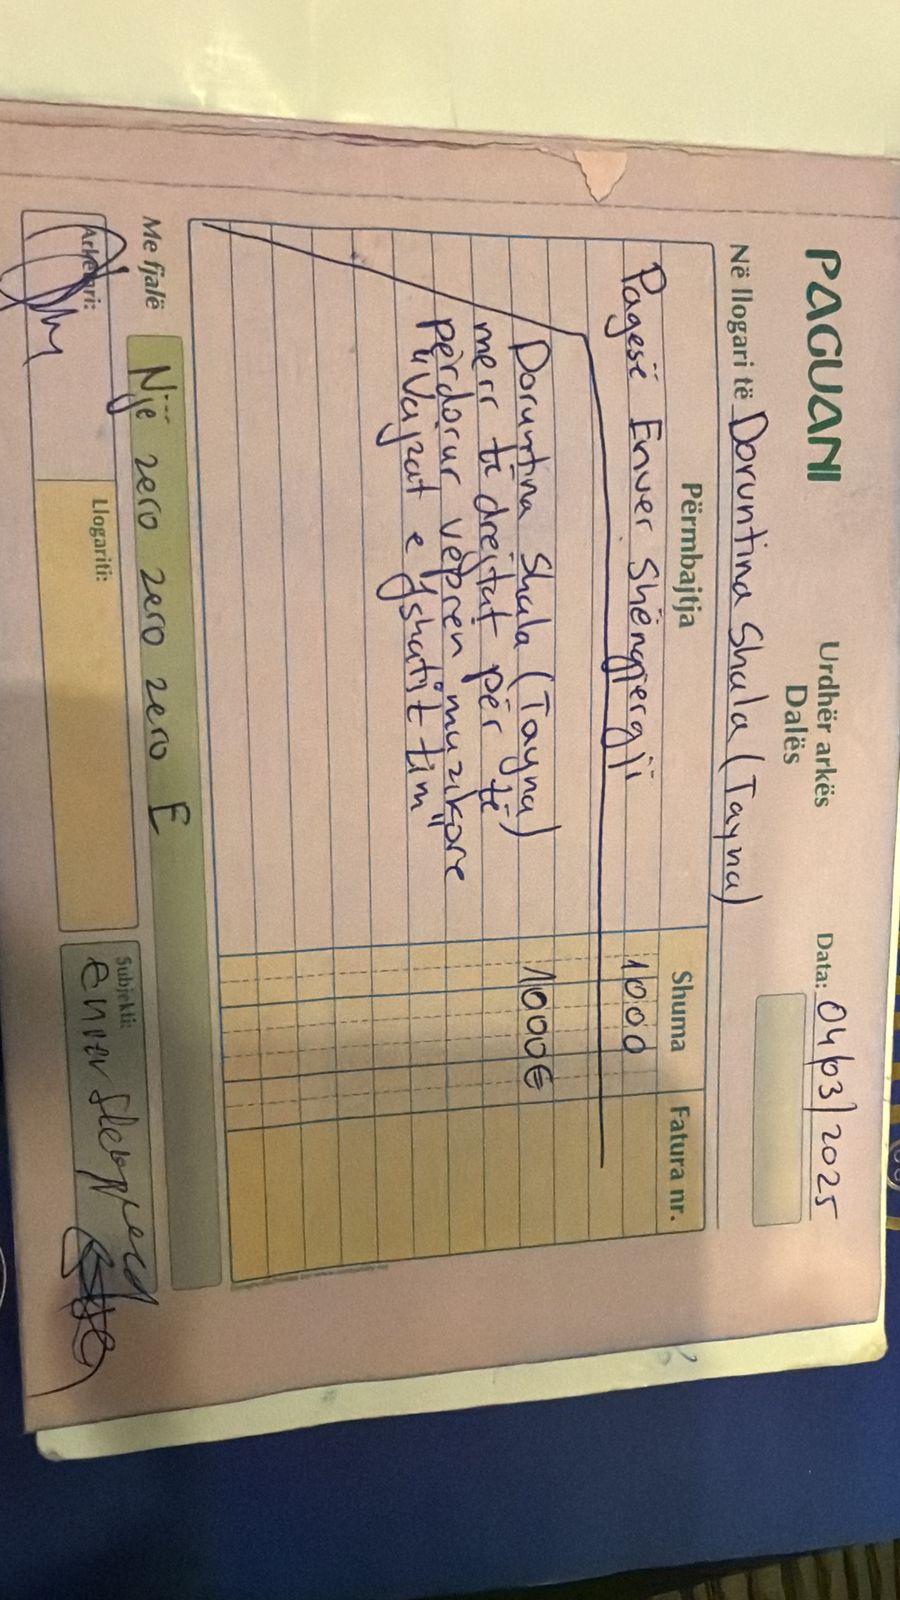 PAGUANI
Urdhër arkës
Dalës
Data: 04/03/2025
Në llogari të Doruntina Shala (Tayna)
Përmbajtja Shuma Fatura nr.
Pagesë Enver Shëngjergji 1000
Doruntina Shala (Tayna) 1000€
merr të drejtat për të
përdorur veprën muzikore
"Vajzat e fshatit tim"
Me fjalë Një zero zero zero E
Arkëtari: Llogariti: Subjekti:
enver